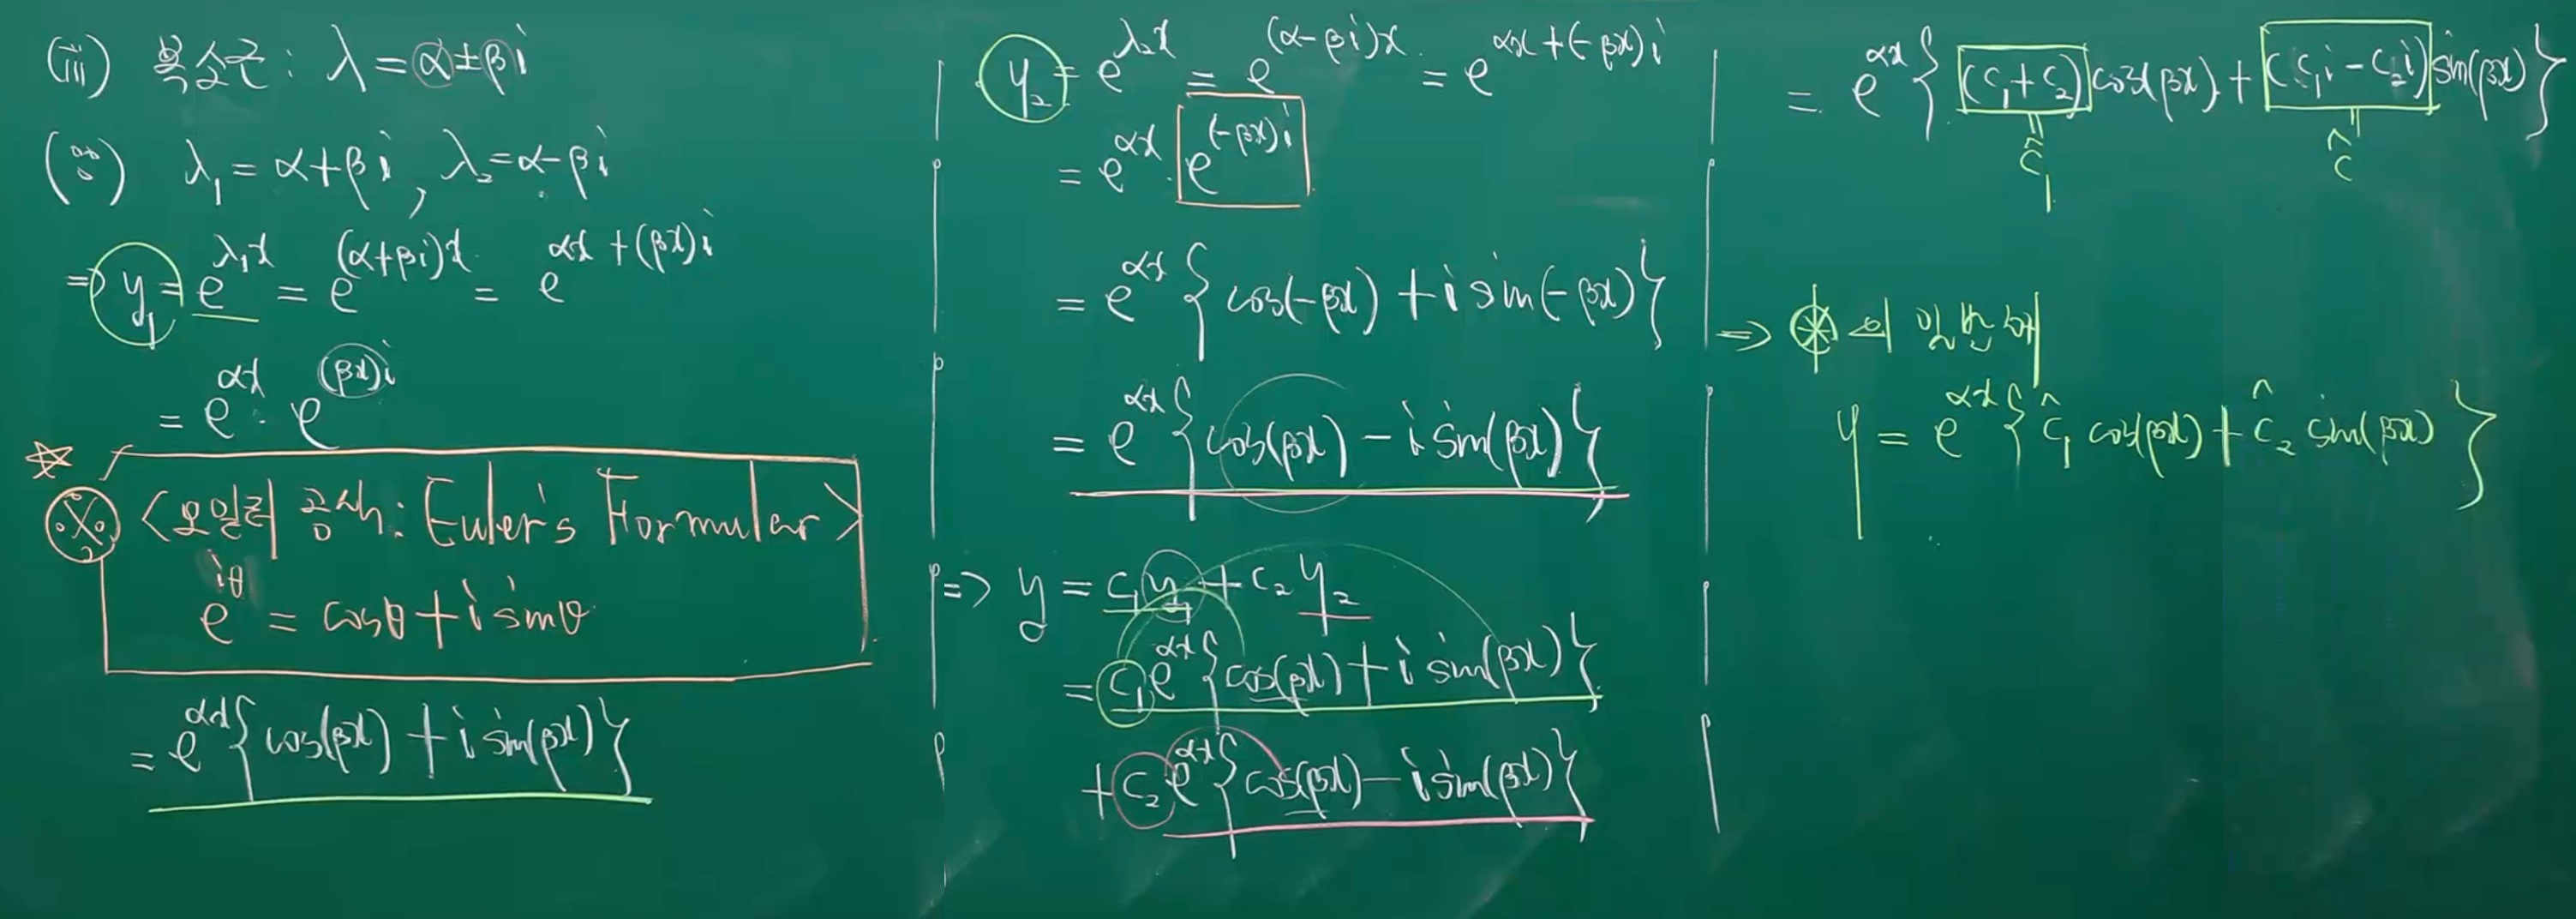 (iii) 복소근 : λ = α ± βi
(∵) λ₁ = α + βi , λ₂ = α - βi
⇒ y₁ = e^{λ₁x} = e^{(α+βi)x} = e^{αx + (βx)i}
= e^{αx} · e^{(βx)i}
☆ ※ <오일러 공식 : Euler's Formular>
e^{iθ} = cosθ + i sinθ
= e^{αx} { cos(βx) + i sin(βx) }
y₂ = e^{λ₂x} = e^{(α-βi)x} = e^{αx + (-βx)i}
= e^{αx} · e^{(-βx)i}
= e^{αx} { cos(-βx) + i sin(-βx) }
= e^{αx} { cos(βx) - i sin(βx) }
⇒ y = c₁y₁ + c₂y₂
= c₁e^{αx} { cos(βx) + i sin(βx) }
+ c₂e^{αx} { cos(βx) - i sin(βx) }
= e^{αx} { (c₁+c₂) cos(βx) + (c₁i - c₂i) sin(βx) }
‖ ‖
ĉ₁ ĉ
⇒ ⊛ 의 일반해
y = e^{αx} { ĉ₁ cos(βx) + ĉ₂ sin(βx) }